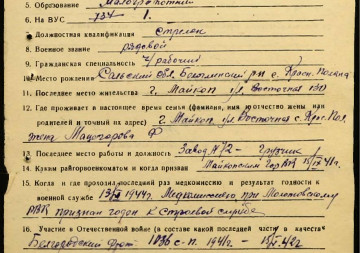 5. Образование Малограмотный
6. На ВУС 134 - 1.
7. Должностная квалификация стрелок
8. Военное звание рядовой
9. Гражданская специальность ч/рабочий
10. Место рождения обл. р-н с. Красн. Поляна
11. Последнее место жительства г. Майкоп ул. Восточная
12. Где проживает в настоящее время семья (фамилия, имя, отчество жены или
родителей и точный их адрес) г. Майкоп ул. Восточная с. Крас. Пол.
Ф
13. Последнее место работы и должность Завод №72 - грузчик
14. Каким райгорвоенкоматом и когда призван Майкопским Гор ВК 41 г.
15. Когда и где проходил последний раз медкомиссию и результат годности к
военной службе 1944 г. Медкомиссией при Молотовском
РВК признан годен к строевой службе
16. Участие в Отечественной войне (в составе какой последней части в качестве
фронт: с-п. 1941 г. - 42 г.